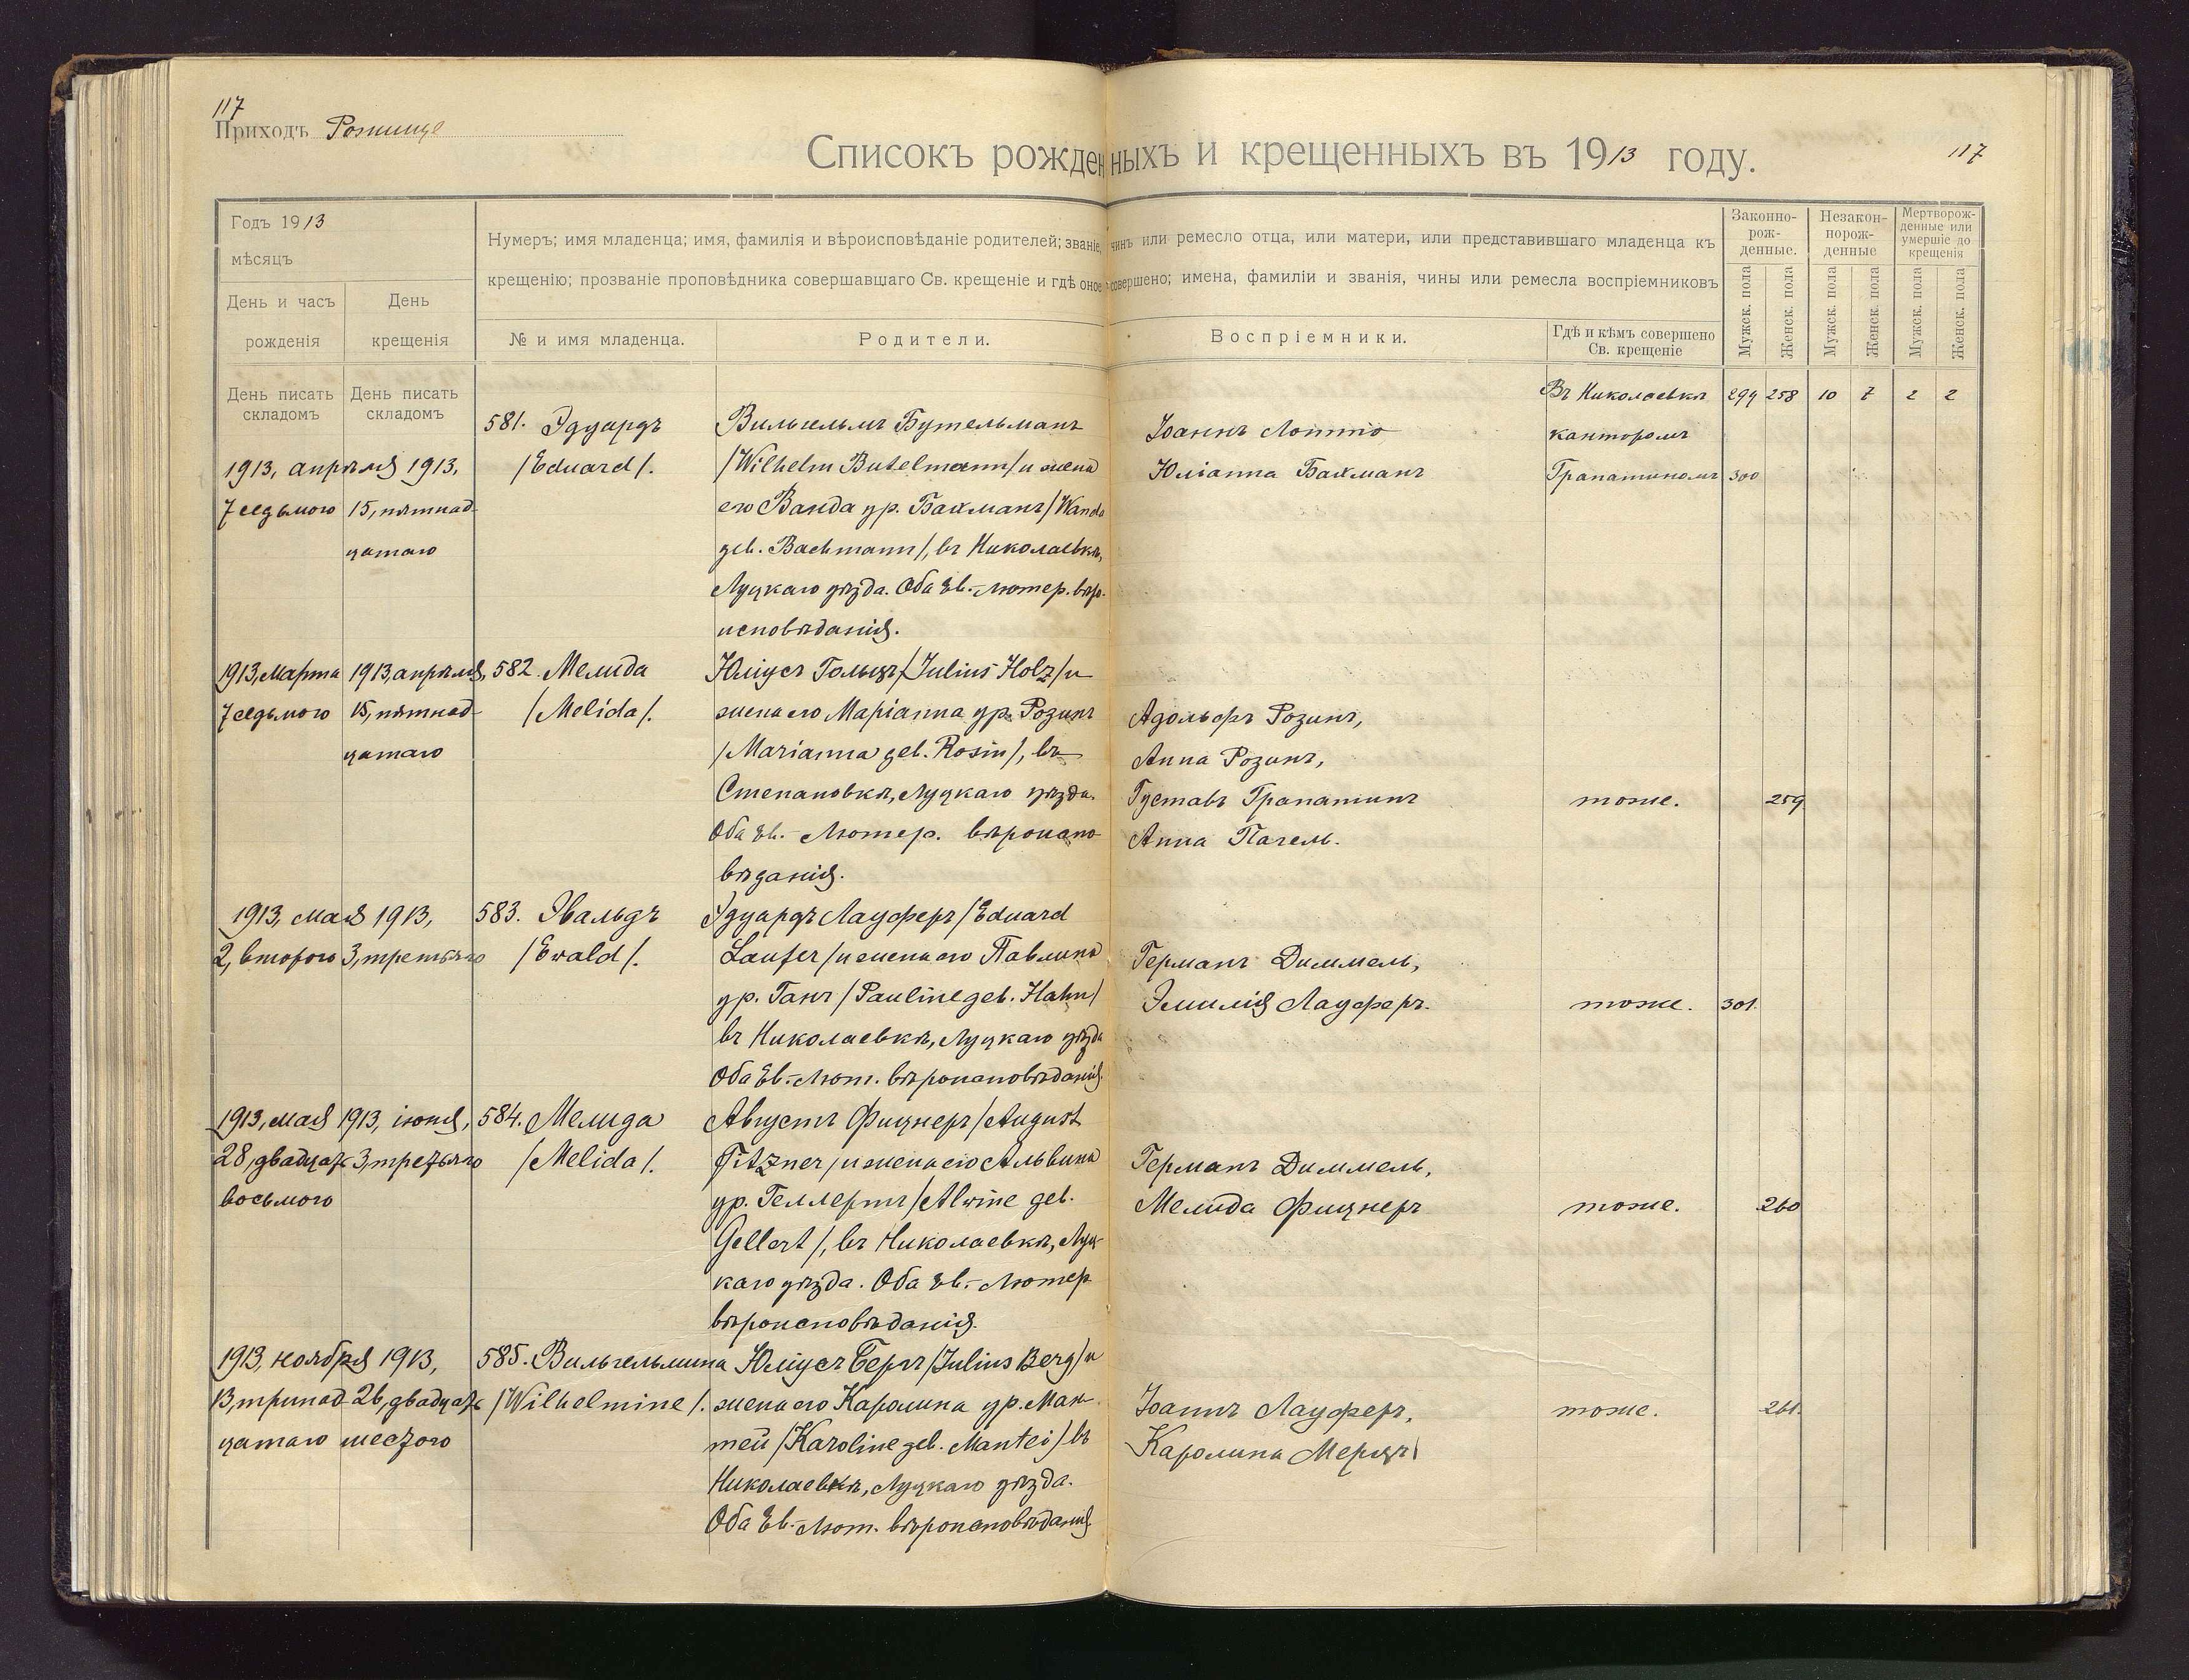 117
Приходъ Рожище
Списокъ рожденныхъ и крещенныхъ въ 1913 году.
117
Годъ 1913
мѣсяцъ
День и часъ рожденія
День крещенія
День писать складомъ
День писать складомъ
Нумеръ; имя младенца; имя, фамилія и вѣроисповѣданіе родителей; званіе, чинъ или ремесло отца, или матери, или представившаго младенца къ
крещенію; прозваніе проповѣдника совершавшаго Св. крещеніе и гдѣ оное совершено; имена, фамиліи и званія, чины или ремесла воспріемниковъ
№ и имя младенца.
Родители.
Воспріемники.
Гдѣ и кѣмъ совершено
Св. крещеніе
Законно-
рож-
денные.
Незакон-
норож-
денные
Мертворож-
денные или
умершіе до
крещенія
Мужск. пола
Женск. пола
Мужск. пола
Женск. пола
Мужск. пола
Женск. пола
299 258 10 7 2 2
1913, апрѣля 1913,
7 седьмого 15, пятнад-
цатаго
581. Эдуардъ
/Eduard/.
Вильгельмъ Бутельманъ
/Wilhelm Butelmann/ и жена
его Ванда ур. Бахманъ /Wanda
geb. Bachmann/, въ Николаевкѣ,
Луцкаго уѣзда. Оба Ев.-лютер. вѣро-
исповѣданія.
Іоаннъ Лоттю
Юліанна Бахманъ
Въ Николаевкѣ
канторомъ
Грапатиномъ
300
1913, марта 1913, апрѣля,
7 седьмого 15, пятнад-
цатаго
582. Мелида
/Melida/.
Юліусъ Гольцъ /Julius Holz/ и
жена его Маріанна ур. Розинъ
/Marianna geb. Rosin/, въ
Степановкѣ, Луцкаго уѣзда.
Оба Ев.-Лютер. вѣроиспо-
вѣданія.
Адольфъ Розинъ,
Анна Розинъ,
Густавъ Грапатинъ
Анна Пагель.
тоже.
259
1913, мая 1913,
2, второго 3, третьяго
583. Эвальдъ
/Ewald/.
Эдуардъ Лауферъ /Eduard
Laufer/ и жена его Павлина
ур. Ганъ /Pauline geb. Hahn/
въ Николаевкѣ, Луцкаго уѣзда
Оба Ев.-Лют. вѣроисповѣданія.
Германъ Диммель,
Эмилія Лауферъ.
тоже.
301.
1913, мая 1913, іюня,
28, двадцать 3, третьяго
восьмого
584. Мелида
/Melida/.
Августъ Фицнеръ /August
Fitzner/ и жена его Альвина
ур. Геллертъ /Alwine geb.
Gellert/, въ Николаевкѣ, Луц-
каго уѣзда. Оба Ев.-Лютер
вѣроисповѣданія.
Германъ Диммель,
Мелида Фицнеръ
тоже.
260
1913, ноября 1913,
13, тринад- 26, двадцать
цатаго шестого
585. Вильгельмина
/Wilhelmine/.
Юліусъ Бергъ /Julius Berg/ и
жена его Каролина ур. Ман-
тей /Karoline geb. Mantei/ въ
Николаевкѣ, Луцкаго уѣзда.
Оба Ев.-Лют. вѣроисповѣданія.
Іоаннъ Лауферъ,
Каролина Мерцъ
тоже.
261.